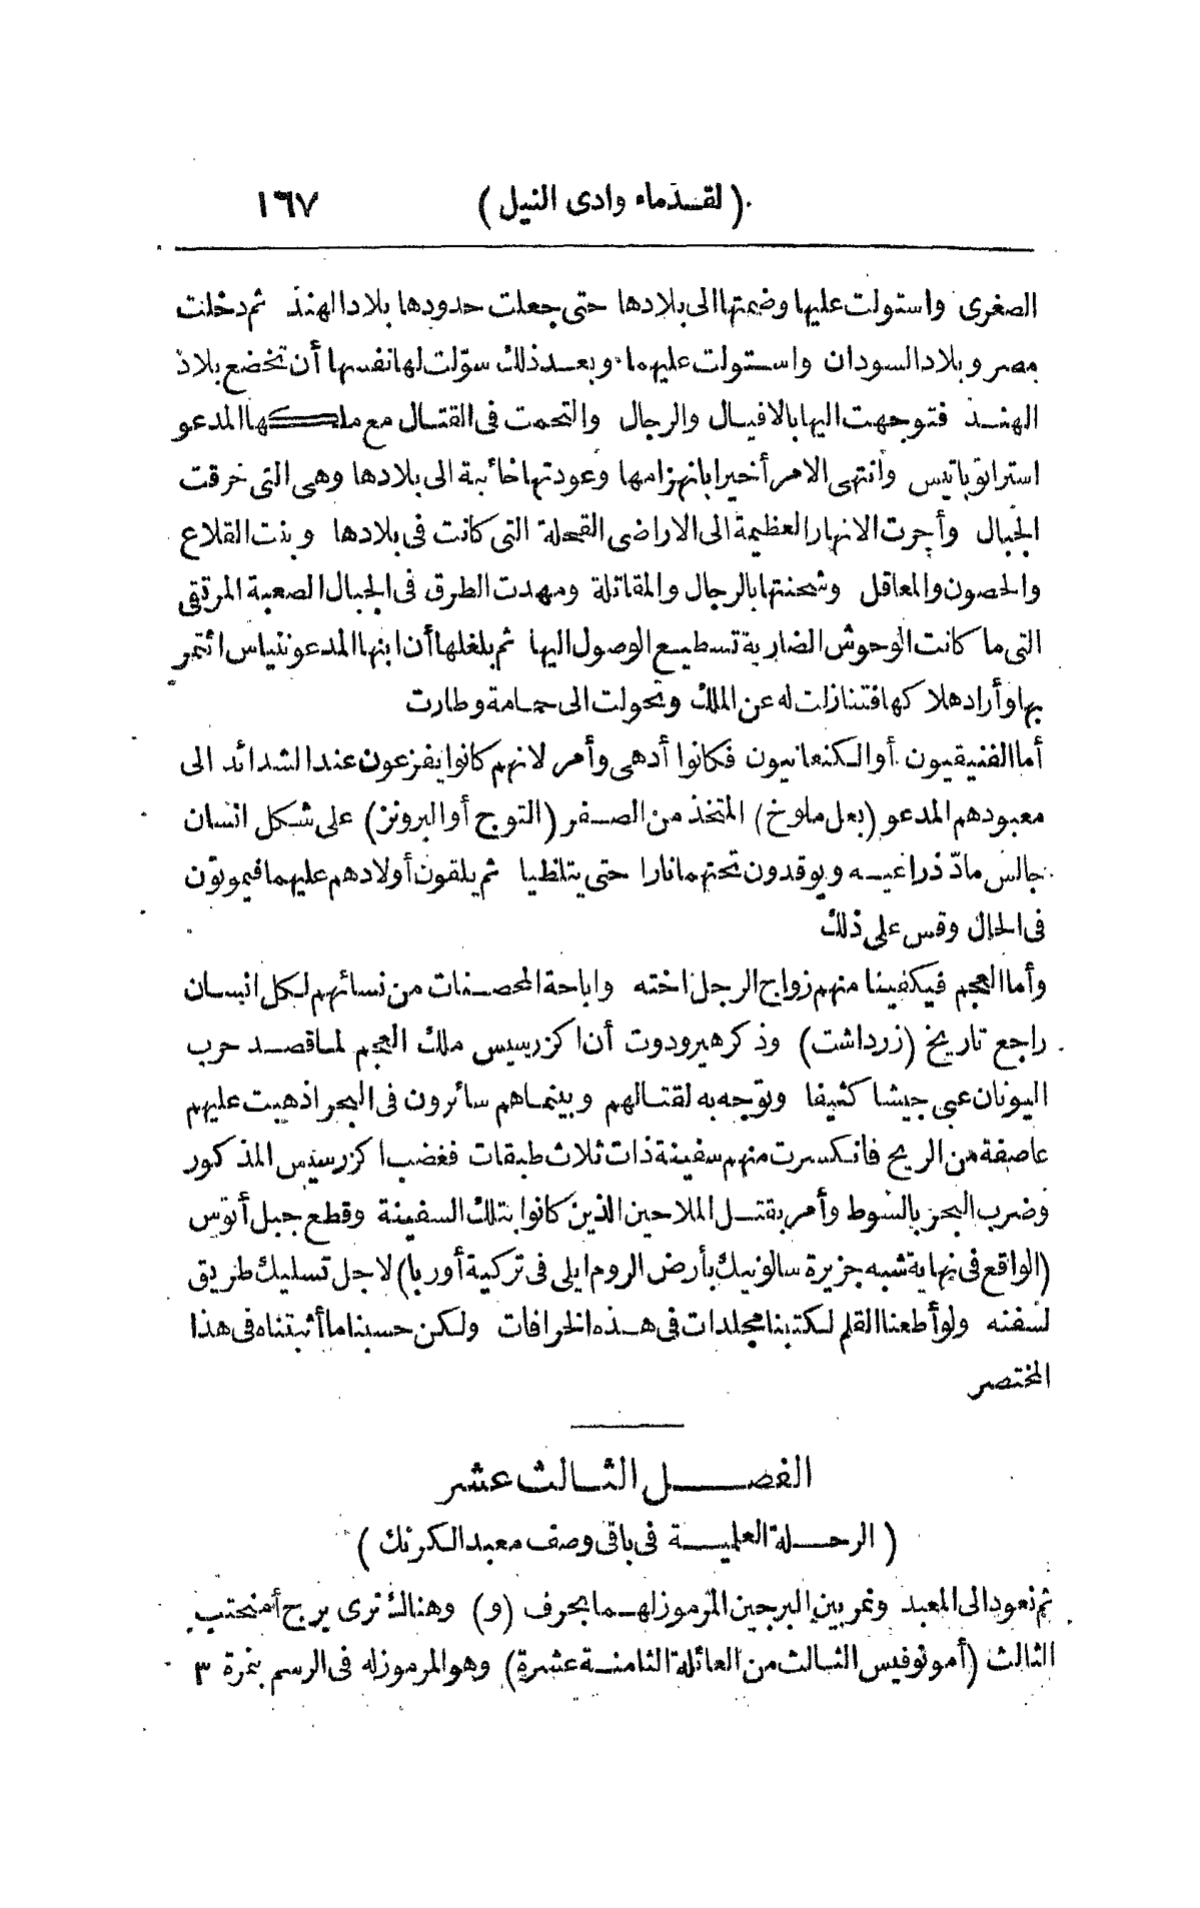 (لقدماء وادى النيل) ١٦٧
الصغرى واستولت عليها وضمتها الى بلادها حتى جعلت حدودها بلاد الهند ثم دخلت
مصر وبلاد السودان واستولت عليهما وبعد ذلك سوّلت لها نفسها أن تخضع بلاد
الهند فتوجهت اليها بالافيال والرجال والتحمت فى القتال مع ملكها المدعو
استرانوباتيس وانتهى الامر أخيرا بانهزامها وعودتها خائبة الى بلادها وهى التى خرقت
الجبال وأجرت الانهار العظيمة الى الاراضى القحلة التى كانت فى بلادها وبنت القلاع
والحصون والمعاقل وشحنتها بالرجال والمقاتلة ومهدت الطرق فى الجبال الصعبة المرتقى
التى ما كانت الوحوش الضارية تسطيع الوصول اليها ثم بلغلها أن ابنها المدعو ننياس ائتمر
بها وأراد هلاكها فتنازلت له عن الملك وتحولت الى حمامة وطارت
أما الفنيقيون أو الكنعانيون فكانوا أدهى وأمر لانهم كانوا يفزعون عند الشدائد الى
معبودهم المدعو (بعل ملوخ) المتخذ من الصفر (التوج أو البرونز) على شكل انسان
جالس مادّ ذراعيه ويوقدون تحتهما نارا حتى يتلظيا ثم يلقون أولادهم عليهما فيموتون
فى الحال وقس على ذلك
وأما العجم فيكفينا منهم زواج الرجل اخته واباحة المحصنات من نسائهم لكل انسان
راجع تاريخ (زرداشت) وذكر هيرودوت أن اكزرسيس ملك العجم لما قصد حرب
اليونان عبى جيشا كثيفا وتوجه به لقتالهم وبينماهم سائرون فى البحر اذ هبت عليهم
عاصفة من الريح فانكسرت منهم سفينة ذات ثلاث طبقات فغضب اكزرسيس المذكور
وضرب البحر بالسوط وأمر بقتل الملاحين الذين كانوا بتلك السفينة وقطع جبل أتوس
(الواقع فى نهاية شبه جزيرة سالونيك بأرض الروم ايلى فى تركية أوربا) لاجل تسليك طريق
لسفنه ولو أطعنا القلم لكتبنا مجلدات فى هذه الخرافات ولكن حسبنا ما أثبتناه فى هذا
المختصر
الفصل الثالث عشر
(الرحلة العلمية فى باقى وصف معبد الكرنك)
ثم نعود الى المعبد ونمر بين البرجين المرموز لهما بحرف (و) وهناك نرى برج أمنحتب
الثالث (أمونوفيس الثالث من العائلة الثامنة عشرة) وهو المرموز له فى الرسم بنمرة ٣